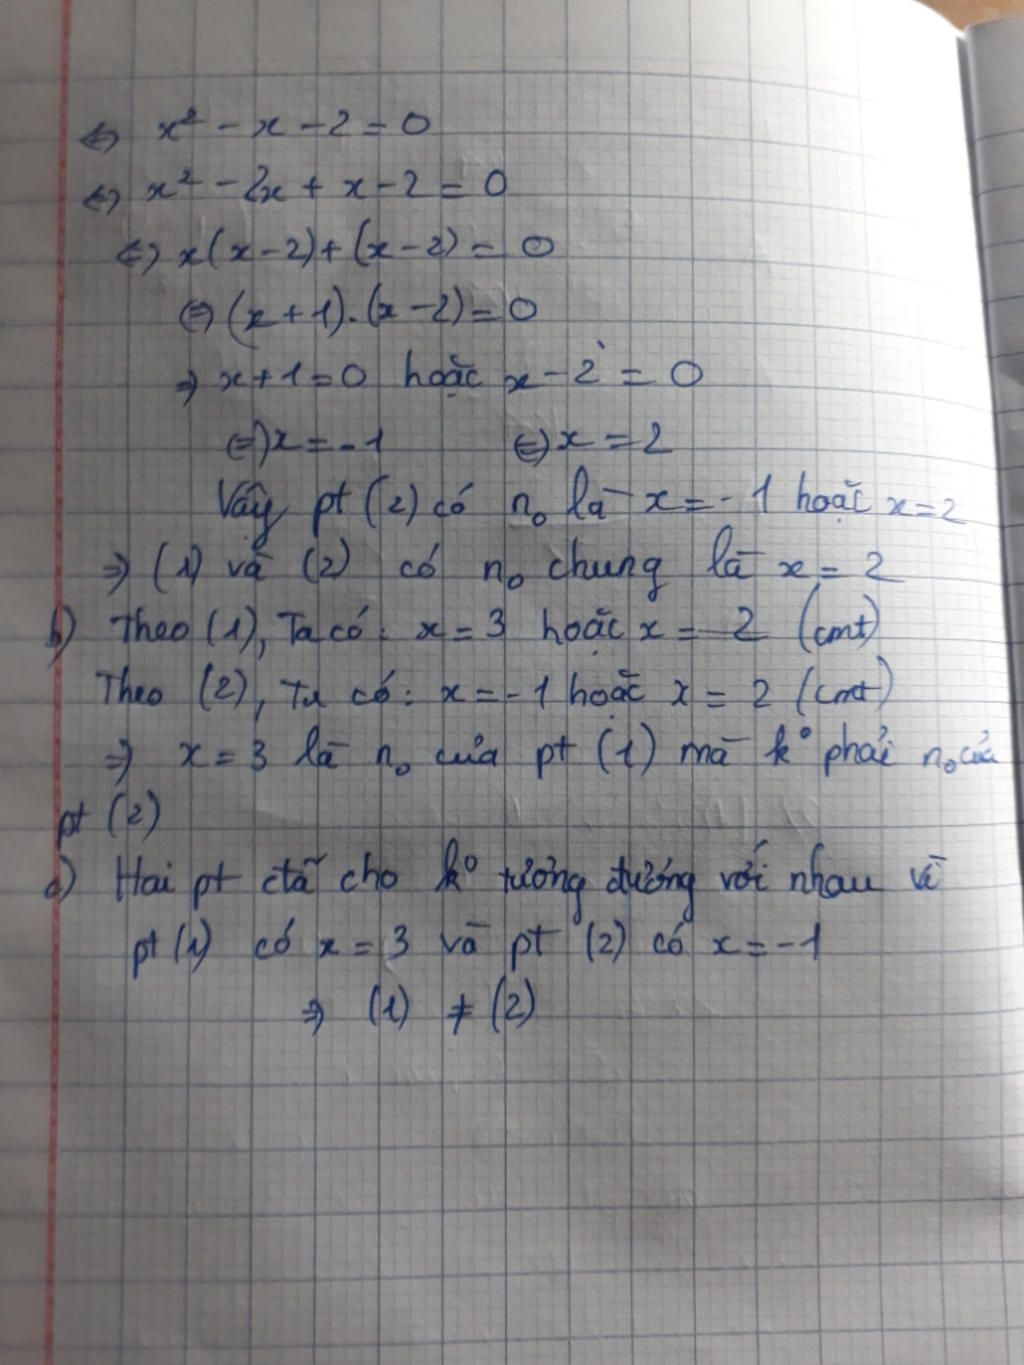 ⇔ x² - x - 2 = 0
⇔ x² - 2x + x - 2 = 0
⇔ x(x - 2) + (x - 2) = 0
⇔ (x + 1).(x - 2) = 0
⇒ x + 1 = 0 hoặc x - 2 = 0
⇔ x = -1 ⇔ x = 2
Vậy pt (2) có n₀ là x = -1 hoặc x = 2
⇒ (1) và (2) có n₀ chung là x = 2
b) Theo (1), Ta có: x = 3 hoặc x = 2 (cmt)
Theo (2), Ta có: x = -1 hoặc x = 2 (cmt)
⇒ x = 3 là n₀ của pt (1) mà k° phải n₀ của
pt (2)
c) Hai pt đã cho k° tương đương với nhau vì
pt (1) có x = 3 và pt (2) có x = -1
⇒ (1) ≠ (2)